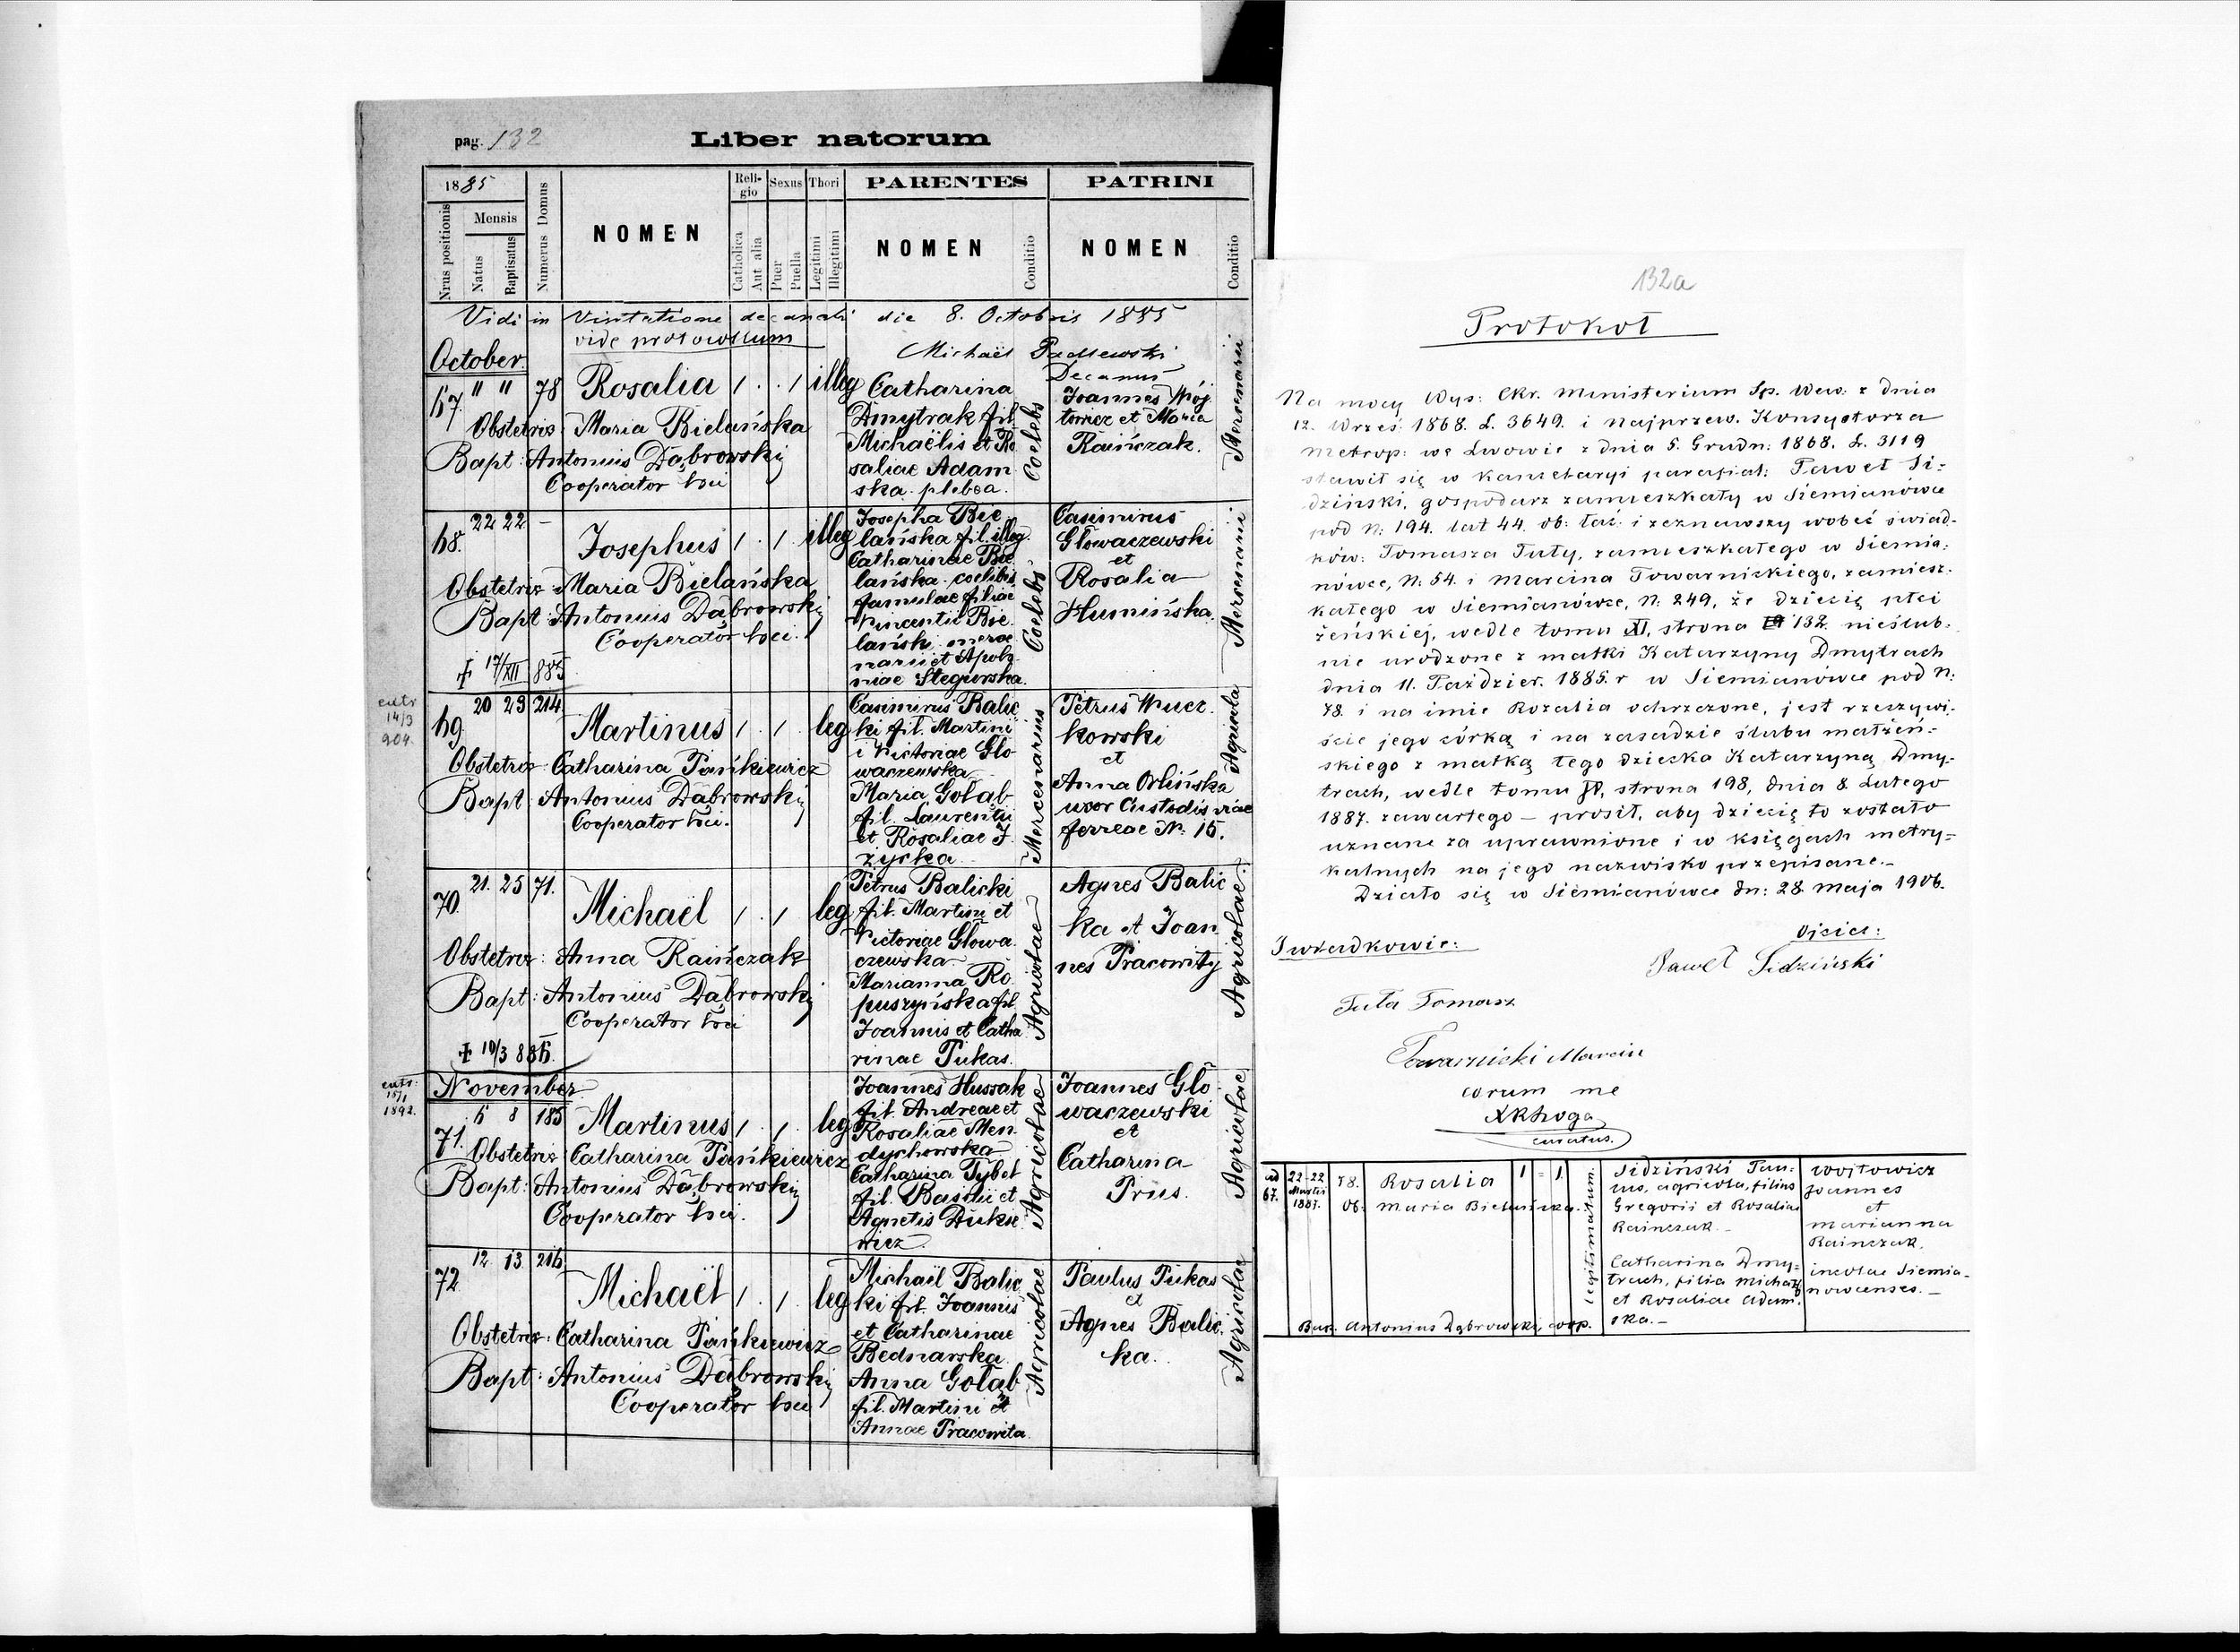 pag. 132
Liber natorum
1885
Nrus positionis
Mensis
Natus
Baptisatus
Numerus Domus
NOMEN
Religio
Catholica
Aut alia
Sexus
Puer
Puella
Thori
Legitimi
Illegitimi
PARENTES
NOMEN
Conditio
PATRINI
NOMEN
Conditio
Vidi in Visitatione decanali die 8. Octobris 1885
vide protocollum
Michaël Padlewski
Decanus
October.
67. " " 78 Rosalia 1 . . 1 illeg
Obstetrix: Maria Bielańska
Bapt: Antonius Dąbrowski
Cooperator loci
Catharina
Dmytrak fil.
Michaëlis et Ro
saliae Adam
ska. plebea.
Coelebs
Joannes Wój
towicz et Maria
Raińczak.
Mercenarii
68. 22 22 - Josephus 1 . 1 illeg
Obstetrix: Maria Bielańska
Bapt: Antonius Dąbrowski
Cooperator loci.
‡ 17/XII 885
Josepha Bie
lańska fil. illeg.
Catharinae Bie
lańska coelibis
famulae filiae
Vincentii Bie
lański merce
narii et Apolo
niae Stegurska.
Coelebs
Casimirus
Głowaczewski
et
Rosalia
Humińska.
Mercenarii
14/3
904.
69 20 23 214 Martinus 1 . 1 leg
Obstetrix: Catharina Pańkiewicz
Bapt: Antonius Dąbrowski
Cooperator loci.
Casimirus Balic
ki fil. Martini
i Victoriae Gło
waczewska
Maria Gołąb
fil. Laurentii
et Rosaliae J.
życka
Mercenarius
Petrus Wucz
kowski
et
Anna Orlińska
uxor Custodis viae
ferreae N: 15.
Agricola
70. 21. 25 71. Michaël 1 . 1 leg
Obstetrix: Anna Raińczak
Bapt: Antonius Dąbrowski
Cooperator loci
‡ 10/3 886.
Petrus Balicki
fil. Martini et
Victoriae Głowa
czewska
Marianna Ro
puszyńska fil.
Joannis et Catha
rinae Pukas.
Agricolae
Agnes Balic
ka et Joan
nes Pracowity
Agricolae
1892.
November
71. 6 8 185 Martinus 1 . 1 leg
Obstetrix: Catharina Pańkiewicz
Bapt: Antonius Dąbrowski
Cooperator loci.
Joannes Hussak
fil. Andreae et
Rosaliae Men
dychowska
Catharina Tybel
fil. Basilii et
Agnetis Dukie
wicz.
Agricolae
Joannes Gło
waczewski
et
Catharina
Prus.
Agricolae
72. 12 13 216 Michaël 1 . 1 leg
Obstetrix: Catharina Pańkiewicz
Bapt: Antonius Dąbrowski
Cooperator loci
Michaël Balic
ki fil. Joannis
et Catharinae
Bednarska
Anna Gołąb
fil. Martini et
Annae Pracowita
Agricolae
Paulus Pukas
et
Agnes Balic
ka.
Agricolae
132a
Protokół
Na mocy Wys: Ckr. Ministerium Sp. Wew. z dnia
12. Wrześ. 1868. L. 3649. i Najprzew. Konsystorza
metrop: we Lwowie z dnia 5. Grudn: 1868. L. 3119
stawił się w kancelaryi parafial: Paweł Si-
dziński, gospodarz zamieszkały w Siemianówce
pod N: 194. lat 44. ob: łać: i zeznawszy wobec świad-
ków: Tomasza Tuty, zamieszkałego w Siemia-
nówce, N: 54. i Marcina Towarnickiego, zamiesz-
kałego w Siemianówce, N: 249, że dziecię płci
żeńskiej, wedle tomu XI, strona 132. nieślub-
nie urodzone z matki Katarzyny Dmytrach
dnia 11. Paździer. 1885. r w Siemianówce pod N:
78. i na imie Rozalia ochrzczone, jest rzeczywi-
ście jego córką i na zasadzie ślubu małżeń-
skiego z matką tego dziecka Katarzyną Dmy-
trach, wedle tomu IV, strona 198, dnia 8 Lutego
1887. zawartego - prosił, aby dziecię to zostało
uznane za uprawnione i w księgach metry-
kalnych na jego nazwisko przepisane.-
Działo się w Siemianówce dn: 28 maja 1906.
Swiadkowie:
Ojciec:
Paweł Sidziński
Tuta Tomasz
Towarnicki Marcin
coram me
curatus.
ad 67. 22 22 Martii 1887. 78. Rosalia 1 - 1
Ob. Maria Bielańska.
legitimatum.
Sidziński Pau-
lus, agricola, filius
Gregorii et Rosaliae
Rainczak. -
Catharina Dmy-
trach, filia Michaël
et Rosaliae Adam-
ska. -
Wojtowicz
Joannes
et
Marianna
Rainczak,
incolae Siemia-
nowcenses. -
Bap. Antonius Dąbrowski, coop.